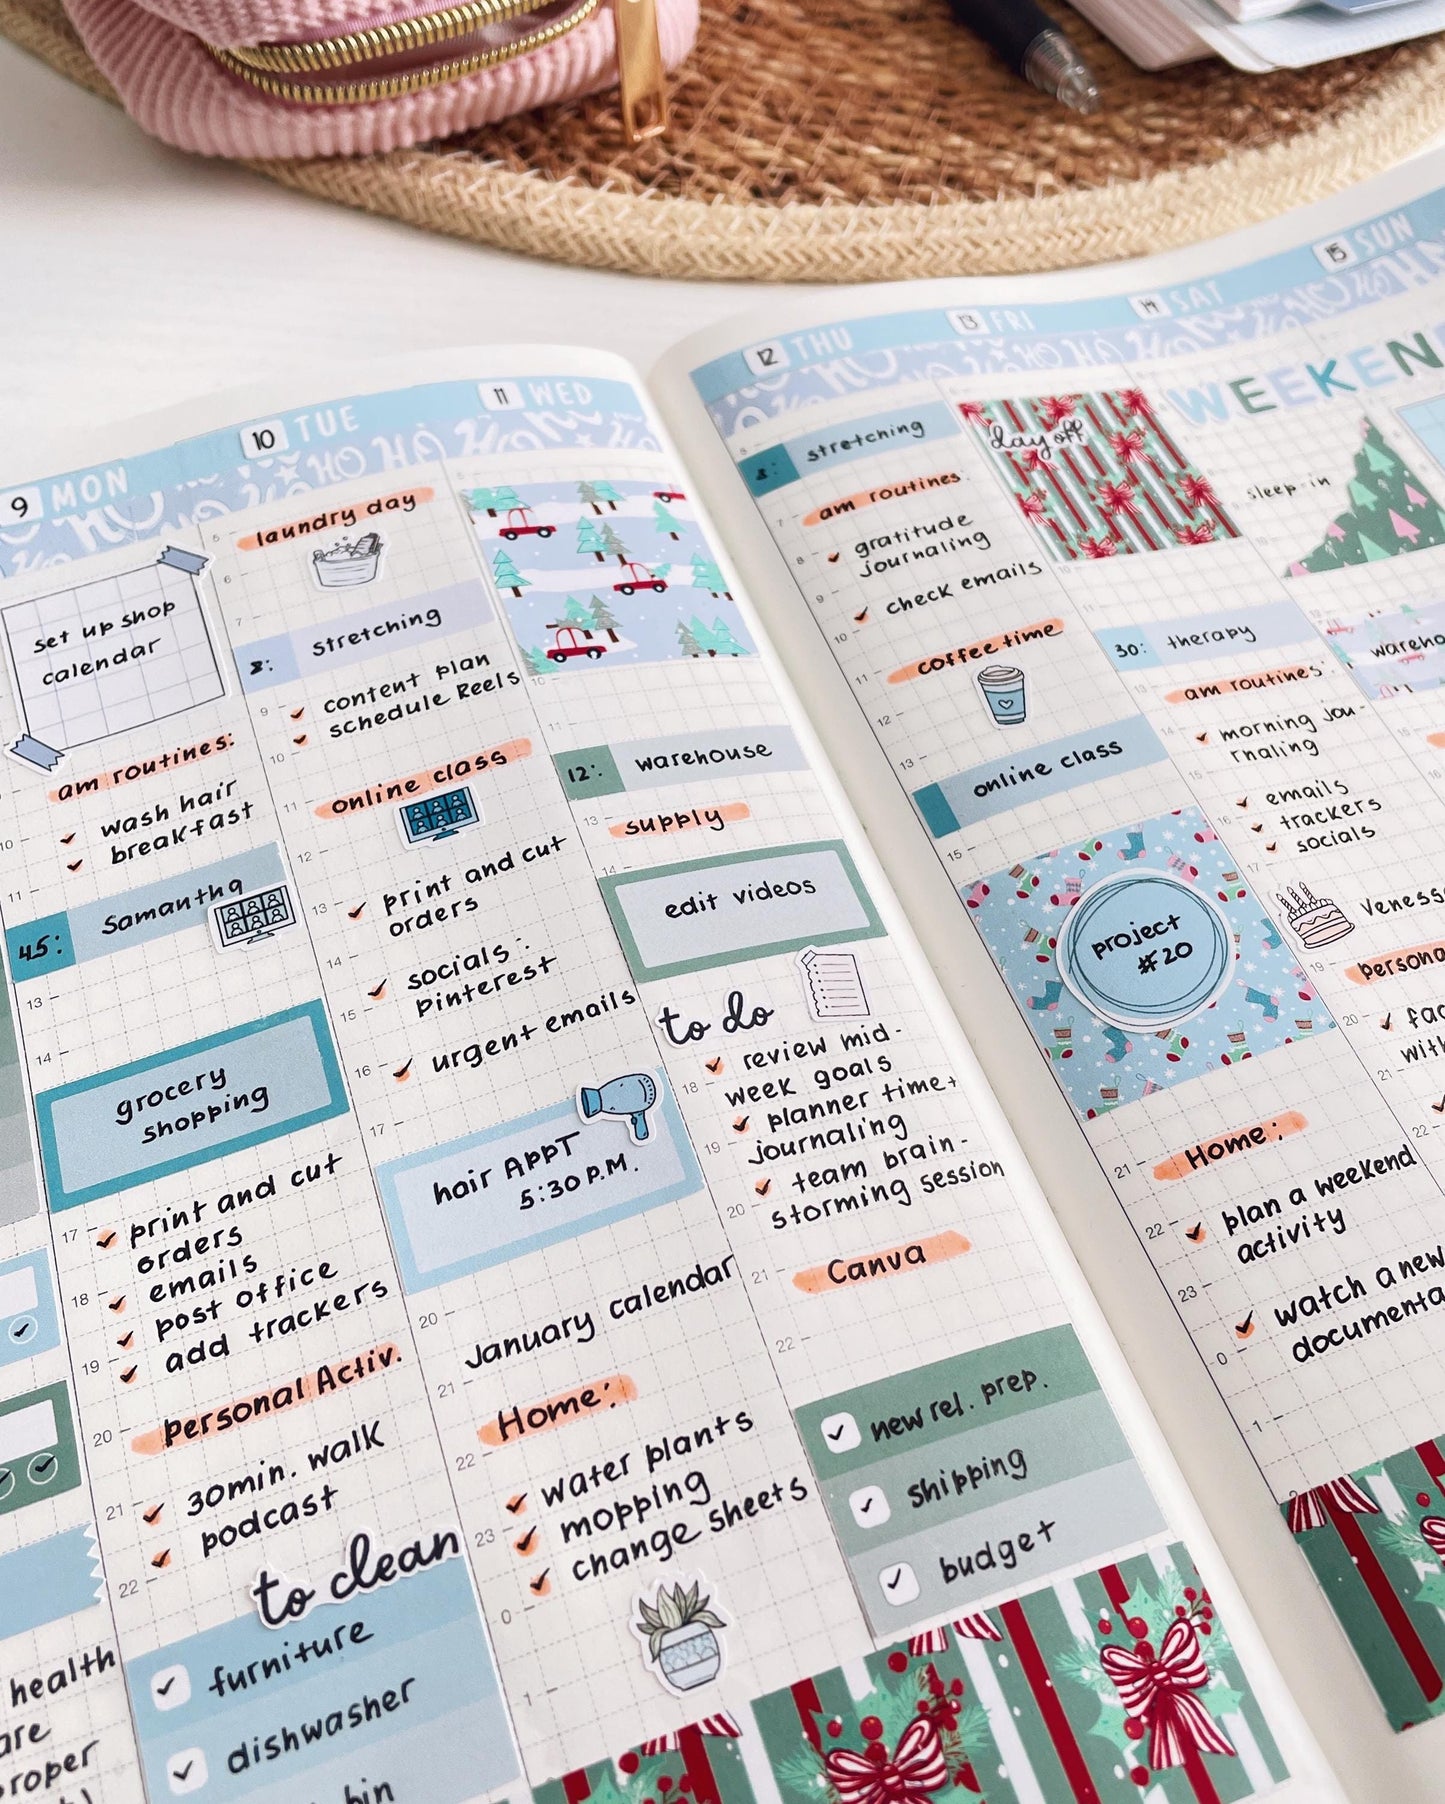 9 MON
set up shop
calendar
am routines:
wash hair
breakfast
45: Samantha
grocery
shopping
print and cut
orders
emails
post office
add trackers
Personal Activ.
30min. walk
podcast
to clean
furniture
dishwasher
bin
health
10 TUE
laundry day
8: stretching
content plan
schedule Reels
online class
print and cut
orders
socials:
pinterest
urgent emails
hair APPT
5:30 P.M.
January calendar
Home:
water plants
mopping
change sheets
11 WED
12: warehouse
supply
edit videos
to do
review mid-
week goals
planner time+
journaling
team brain-
storming session
Canva
new rel. prep.
shipping
budget
12 THU
8: stretching
am routines:
gratitude
journaling
check emails
coffee time
online class
project
#20
Home:
plan a weekend
activity
watch a new
13 FRI
day off
30: therapy
am routines:
morning jou-
rnaling
emails
trackers
socials
14 SAT
15 SUN
sleep-in